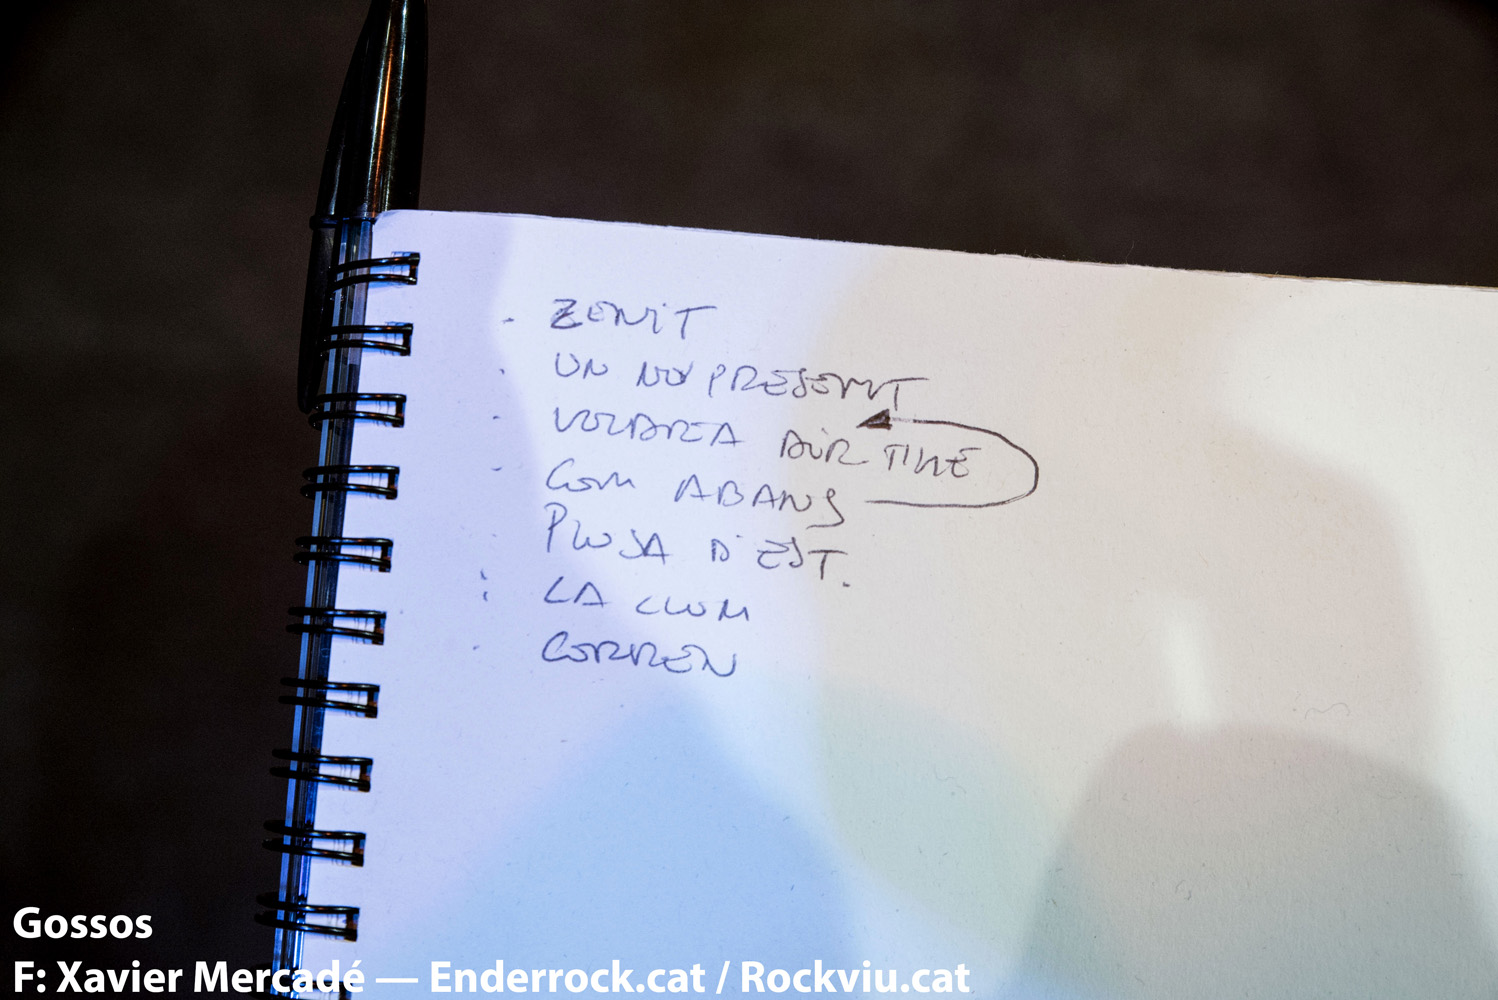 - ZENIT
- UN NOU PRESENT
- VOLDRIA DIR-TI-HE
- COM ABANS
PLUJA D'EST.
: LA LLUM
- CORREN
Gossos
F: Xavier Mercadé — Enderrock.cat / Rockviu.cat